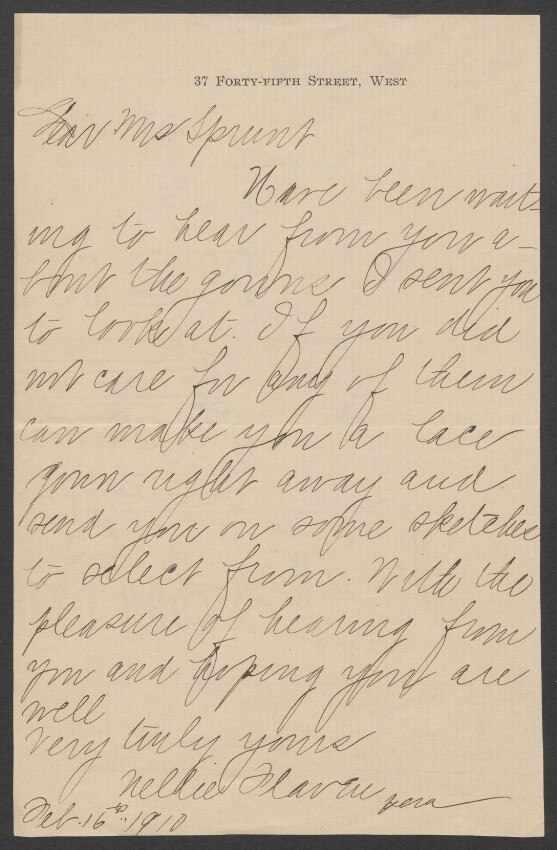 37 Forty-fifth Street, West
Dear Mrs Sprunt
Have been wait-
ing to hear from you a-
bout the gowns I sent you
to look at. If you did
not care for any of them
can make you a lace
gown right away and
send you on some sketches
to select from. With the
pleasure of hearing from
you and hoping you are
well
Very truly yours
Nellie Flavin
Feb. 16th 1910